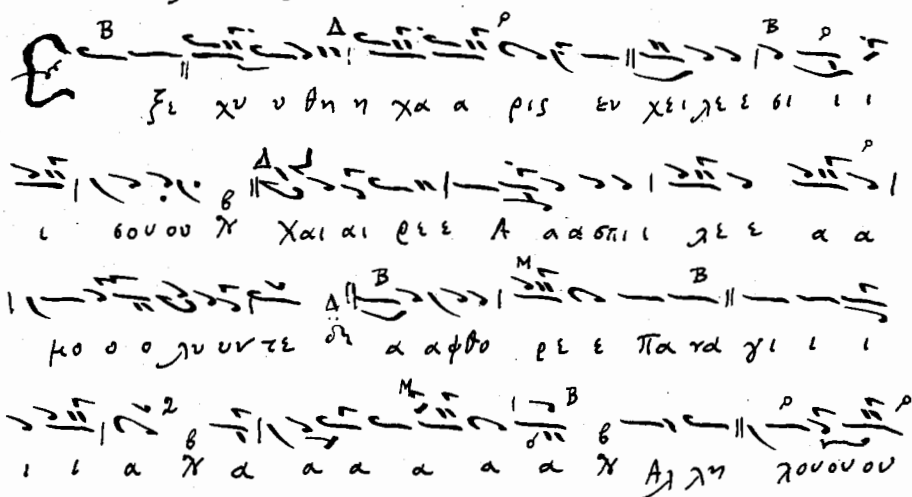 Ε ξε χυ υ θη η χα α ρις εν χει λε ε σι ι ι
ι σου ου χαι αι ρε ε Α α α σπι ι λε ε α α
μο ο ο λυ υν τε α α φθο ρε ε Πα να γι ι ι
ι ι α α α α α α α Αλ λη λου ου ου